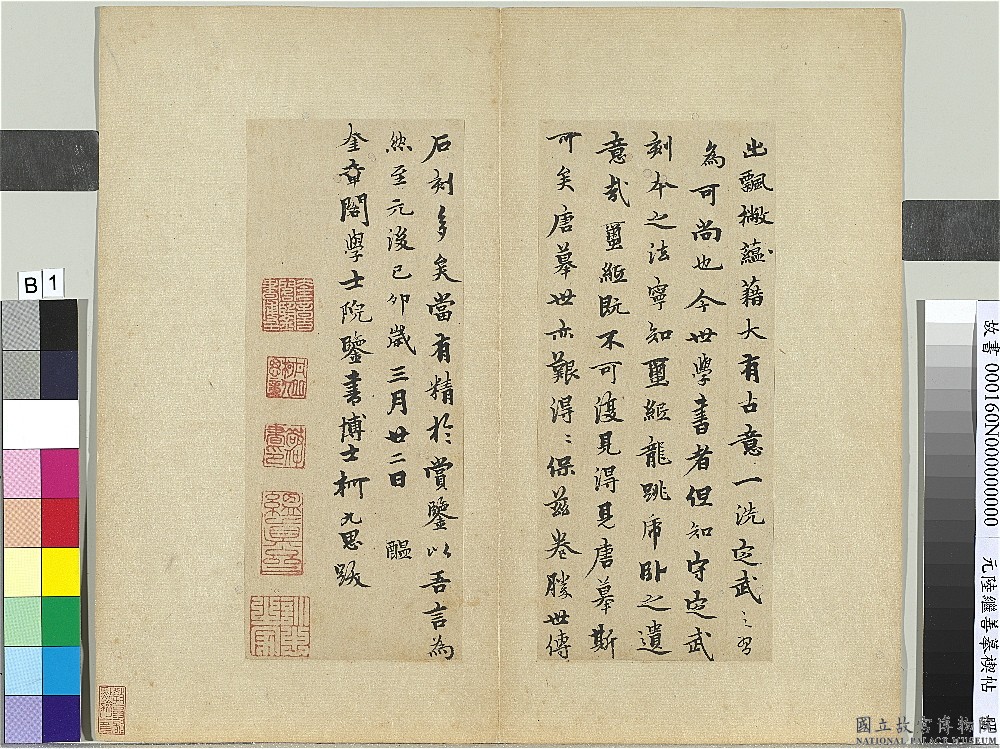 出飄撇蘊藉大有古意一洗定武之習
為可尚也今世學書者但知守定武
刻本之法寧知璽紙龍跳虎臥之遺
意哉璽紙既不可復見得見唐摹斯
可矣唐摹世亦艱得〻保茲卷勝世傳
石刻多矣當有精於賞鑒以吾言為
然至元後己卯歲三月廿二日 醖
奎章閣學士院鑒書博士柯九思跋
B 1
故書 000160N000000000 元陸繼善摹禊帖
國立故宮博物院
NATIONAL PALACE MUSEUM